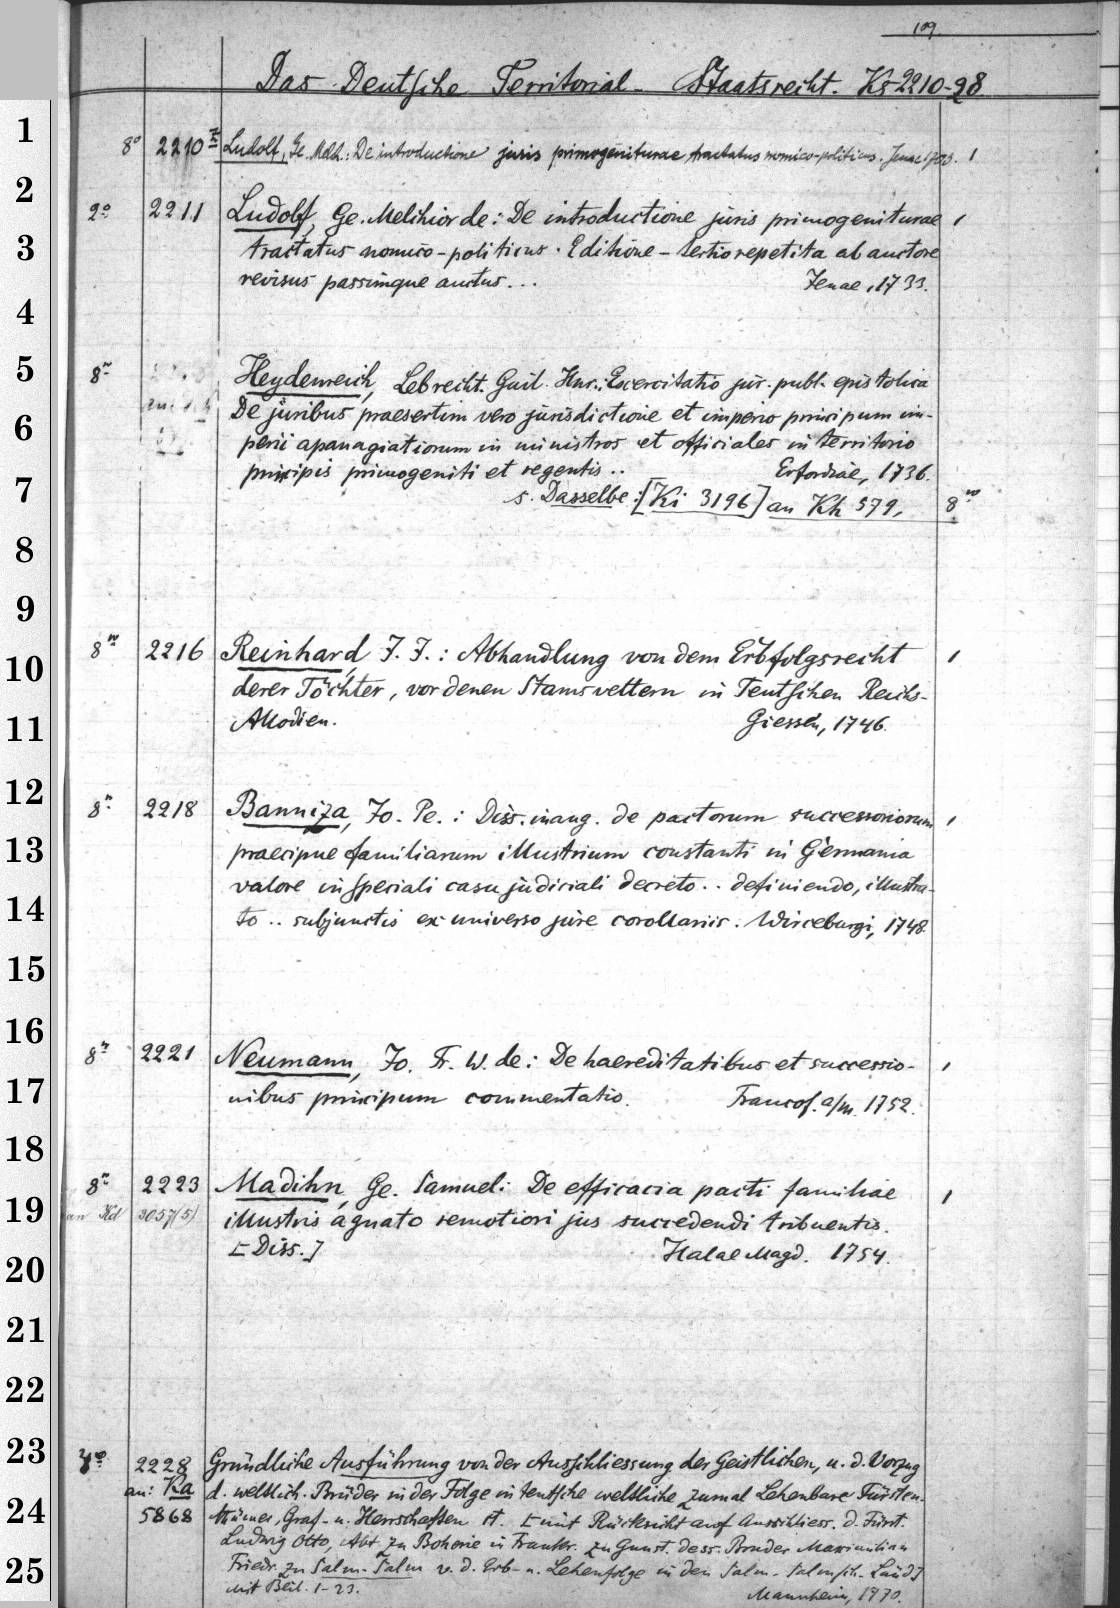 109.
Das Deutsche Territorial-Staatsrecht. Ks 2210-28
1
8° 2210 Ludolf, Ge. Melch.: De introductione juris primogeniturae tractatus nomico-politicus. Jenae 1703. 1
2
2° 2211 Ludolf, Ge. Melchior de: De introductione juris primogeniturae 1
3
tractatus nomico-politicus. Editione tertio repetita ab auctore
revisus passimque auctus... Jenae, 1733.
4
5
8° Heydenreich, Lebrecht. Guil. Hnr.: Exercitatio jur. publ. epistolica
De juribus praesertim vero jurisdictione et imperio principum im-
6
perii apanagiatiorum in ministros et officiales in territorio
principis primogeniti et regentis .. Erfordiae, 1736.
7
s. Dasselbe: [Ki 3196] an Kh 579, 8°
8
9
8° 2216 Reinhard, J. J.: Abhandlung von dem Erbfolgsrecht 1
10
derer Töchter, vor denen Stamsvettern in Teutschen Reichs-
11
Allodien. Giessen, 1746.
12
8° 2218 Banniza, Jo. Pe.: Diss. inaug. de pactorum successoriorum 1
13
praecipue familiarum illustrium constanti in Germania
valore in speciali casu judiciali decreto .. definiendo, illustra-
14
to .. subjunctis ex universo jure corollariis. Wirceburgi, 1748.
15
16
8° 2221 Neumann, Jo. Fr. W. de: De haereditatibus et successio- 1
17
nibus principum commentatio. Francof. a/m. 1752.
18
8° 2223 Madihn, Ge. Samuel: De efficacia pacti familiae 1
19
an Kd 3057(5) illustris agnato remotiori jus succedendi tribuentis.
[Diss.] Halae Magd. 1754.
20
21
22
23
4° 2228 Gründliche Ausführung von der Ausschliessung der Geistlichen, u. d. Vorzug
an: Ka d. weltlich. Brüder in der Folge in teutsche weltliche zumal Lehenbare Fürsten-
24
5868 thümer, Graf- u. Herrschaften [mit Rücksicht auf Ausschliess. d. Fürst.
Ludwig Otto, Abt zu Boherie in Frankr. zu Gunst. dess. Bruder Maximilian
25
Friedr. zu Salm-Salm v. d. Erb- u. Lehenfolge in den Salm-Salmsch. Länd]
Mit Beil. 1-23. Mannheim, 1770.